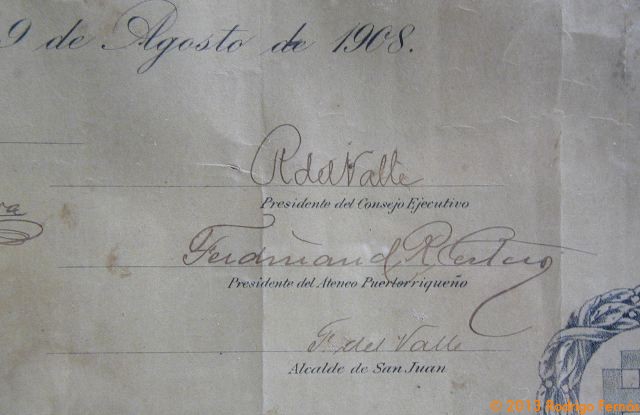 9 de Agosto de 1908.
R del Valle
Presidente del Consejo Ejecutivo
Ferdinand R. Cestero
Presidente del Ateneo Puertorriqueño
F. del Valle
Alcalde de San Juan
© 2013 Rodrigo Fernós